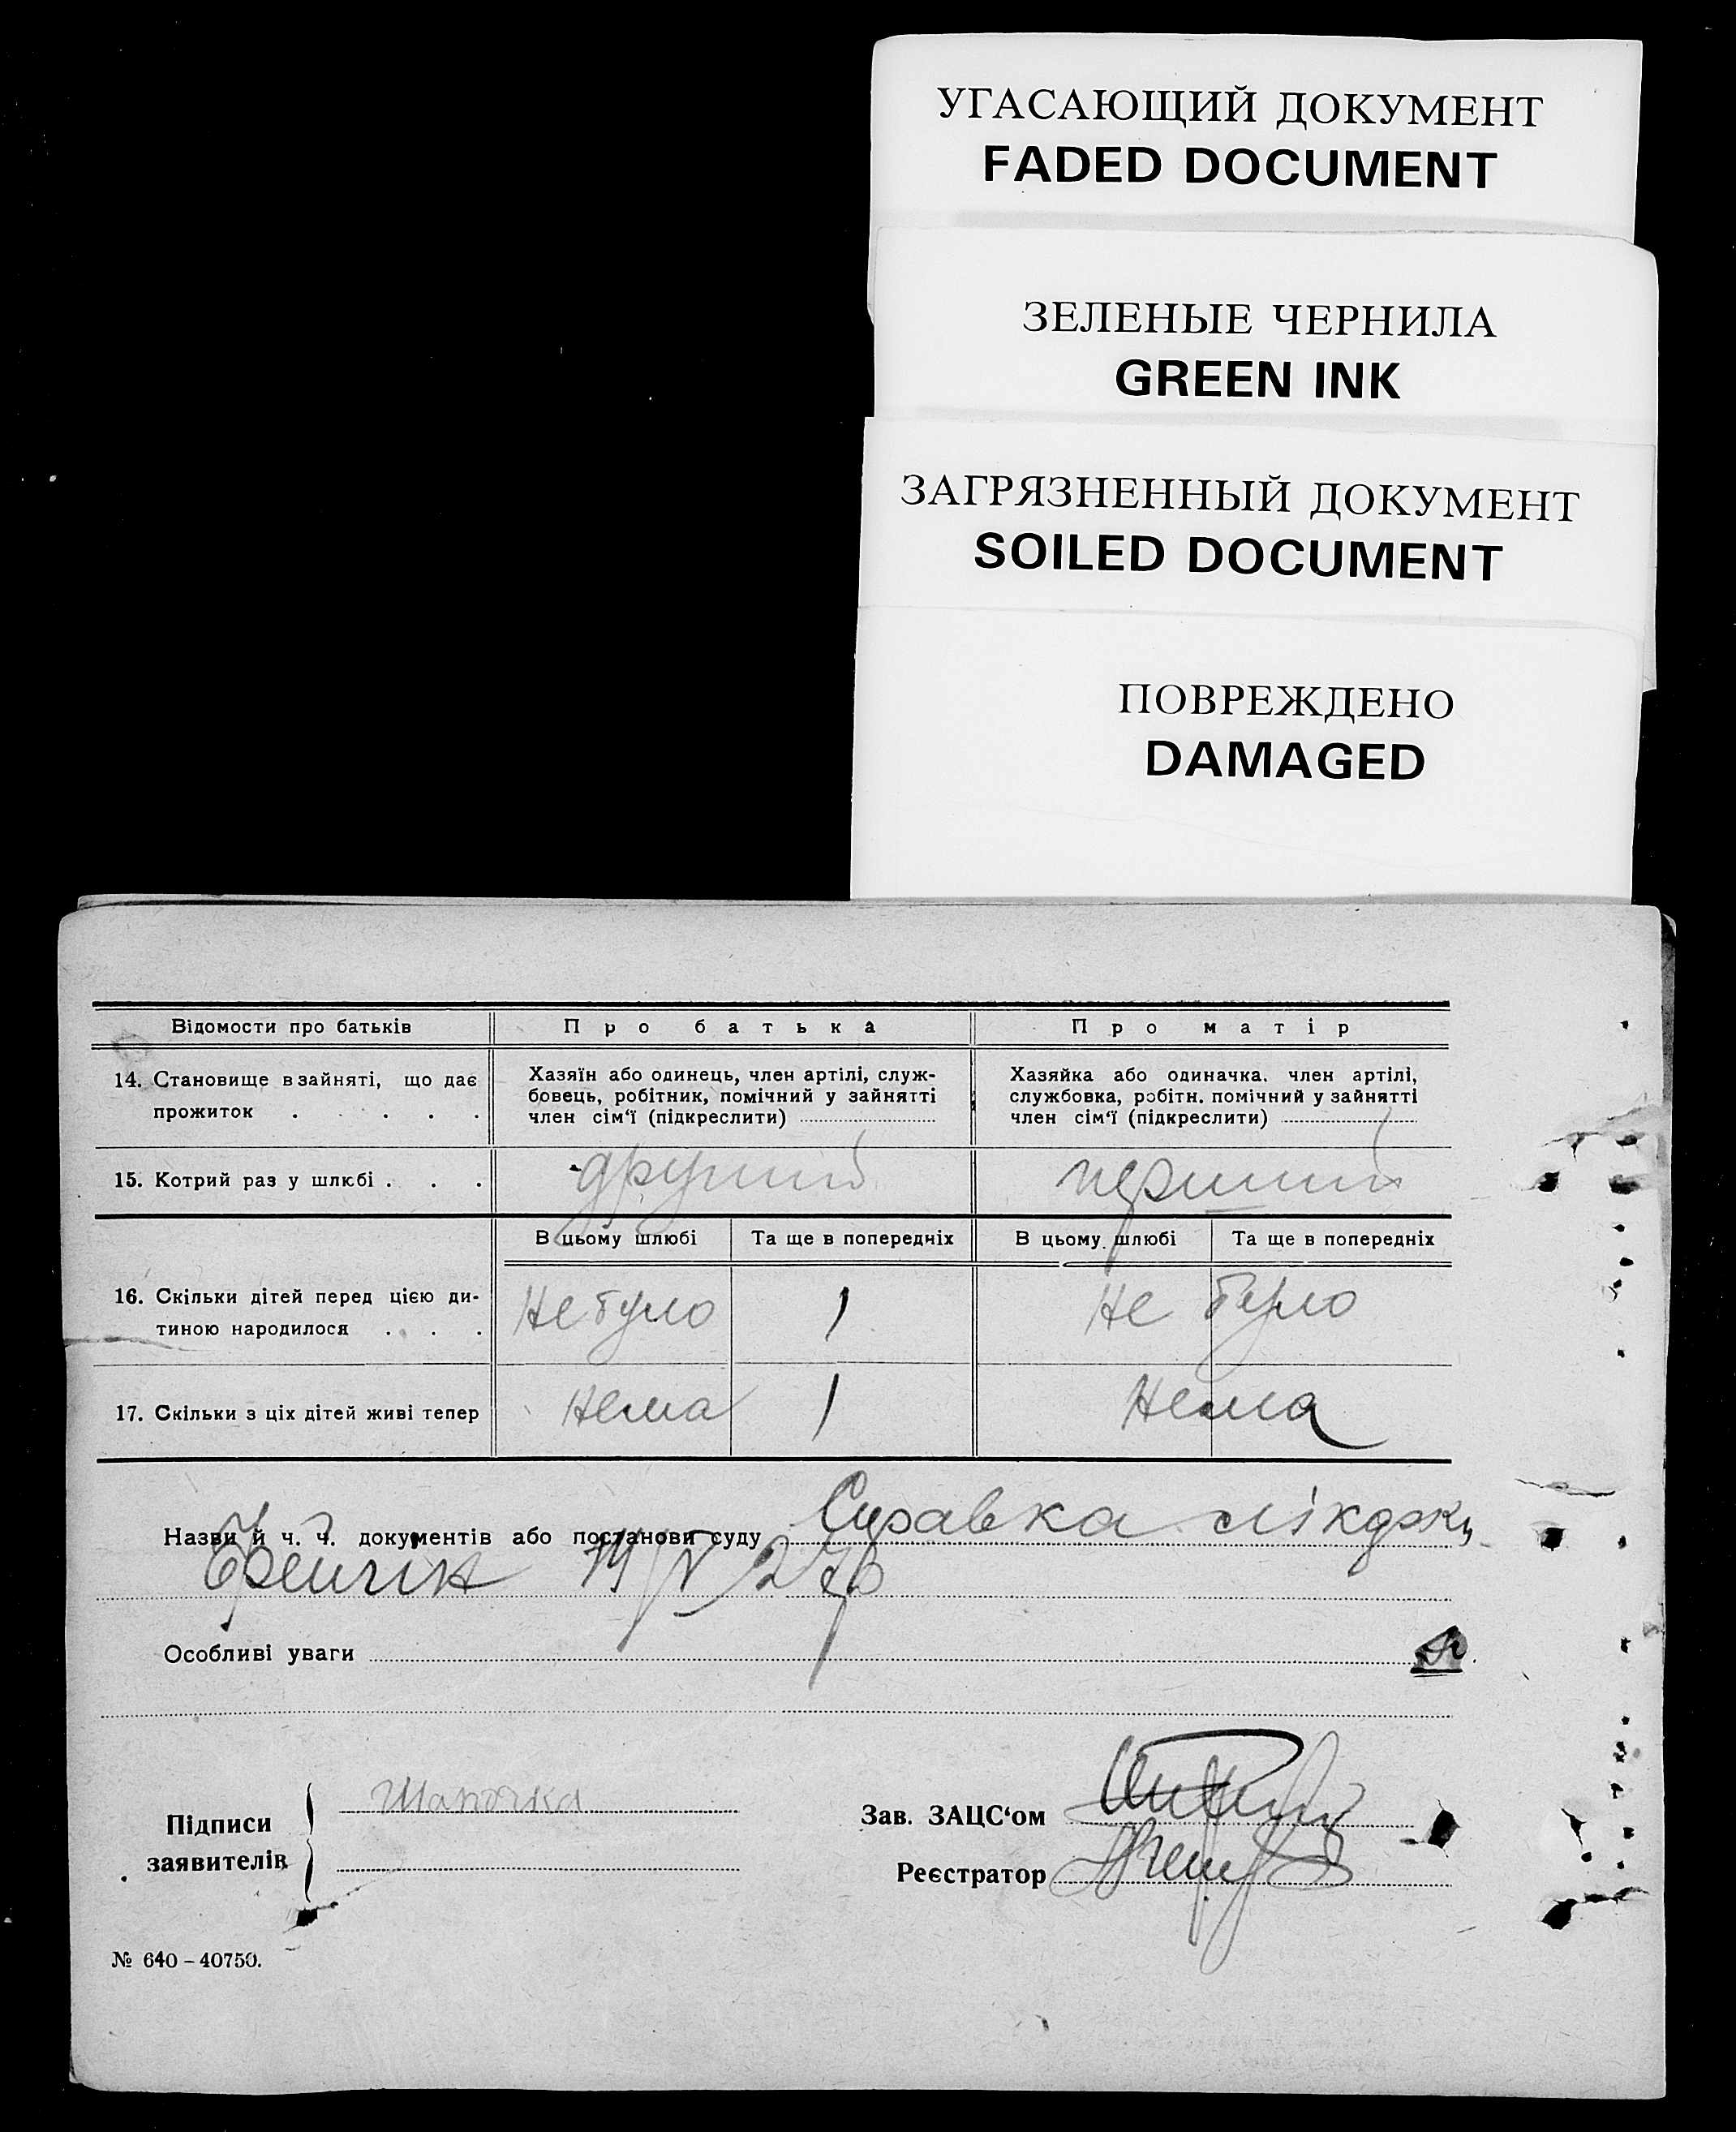 УГАСАЮЩИЙ ДОКУМЕНТ
FADED DOCUMENT
ЗЕЛЕНЫЕ ЧЕРНИЛА
GREEN INK
ЗАГРЯЗНЕННЫЙ ДОКУМЕНТ
SOILED DOCUMENT
ПОВРЕЖДЕНО
DAMAGED
Відомости про батьків
Про батька
Про матір
14. Становище в зайняті, що дає
прожиток . . . . .
Хазяїн або одинець, член артілі, служ-
бовець, робітник, помічний у зайнятті
член сім‘ї (підкреслити)
Хазяйка або одиначка, член артілі,
службовка, робітн. помічний у зайнятті
член сім‘ї (підкреслити)
15. Котрий раз у шлюбі . . .
другий
перший
В цьому шлюбі
Та ще в попередніх
В цьому шлюбі
Та ще в попередніх
16. Скільки дітей перед цією ди-
тиною народилося . . . .
Не було
1
Не було
17. Скільки з ціх дітей живі тепер
Нема
1
Нема
Назви й ч. ч. документів або постанови суду Справка
Особливі уваги
Підписи
заявителів
Зав. ЗАЦС‘ом
Реєстратор
№ 640 – 40750.